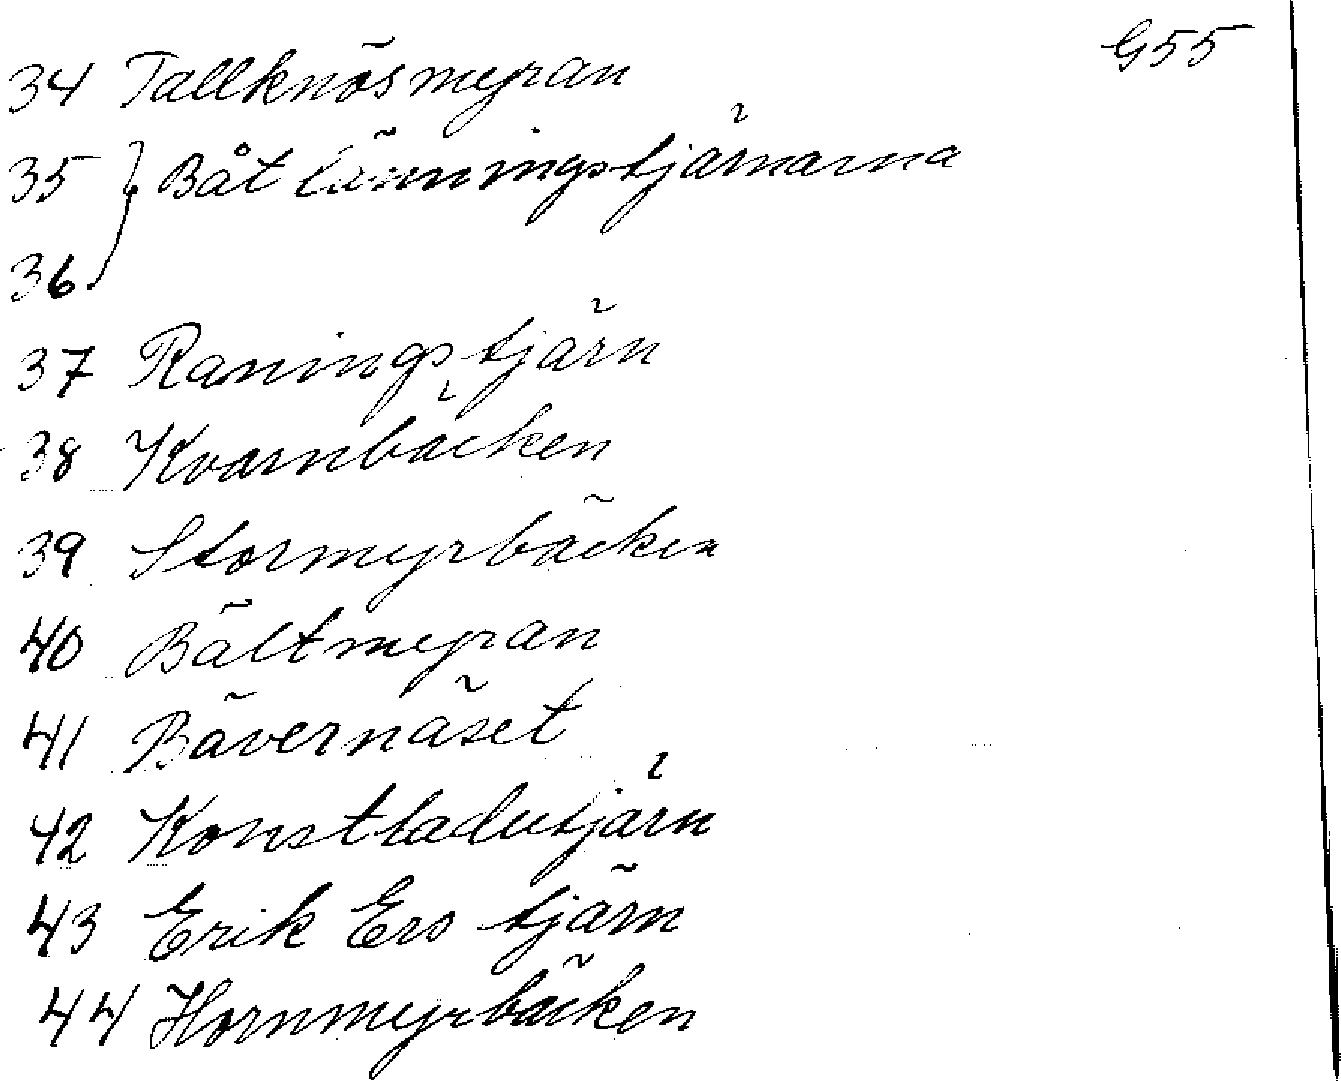 G55
34 Tallknösmyran
35 } Båt länningstjärnarna
36
37 Raningstjärn
38 Kvarnbäcken
39 Stormyrbäcken
40 Bältmyran
41 Bävernäset
42 Konstladutjärn
43 Erik Ers tjärn
44 Hornmyrbäcken